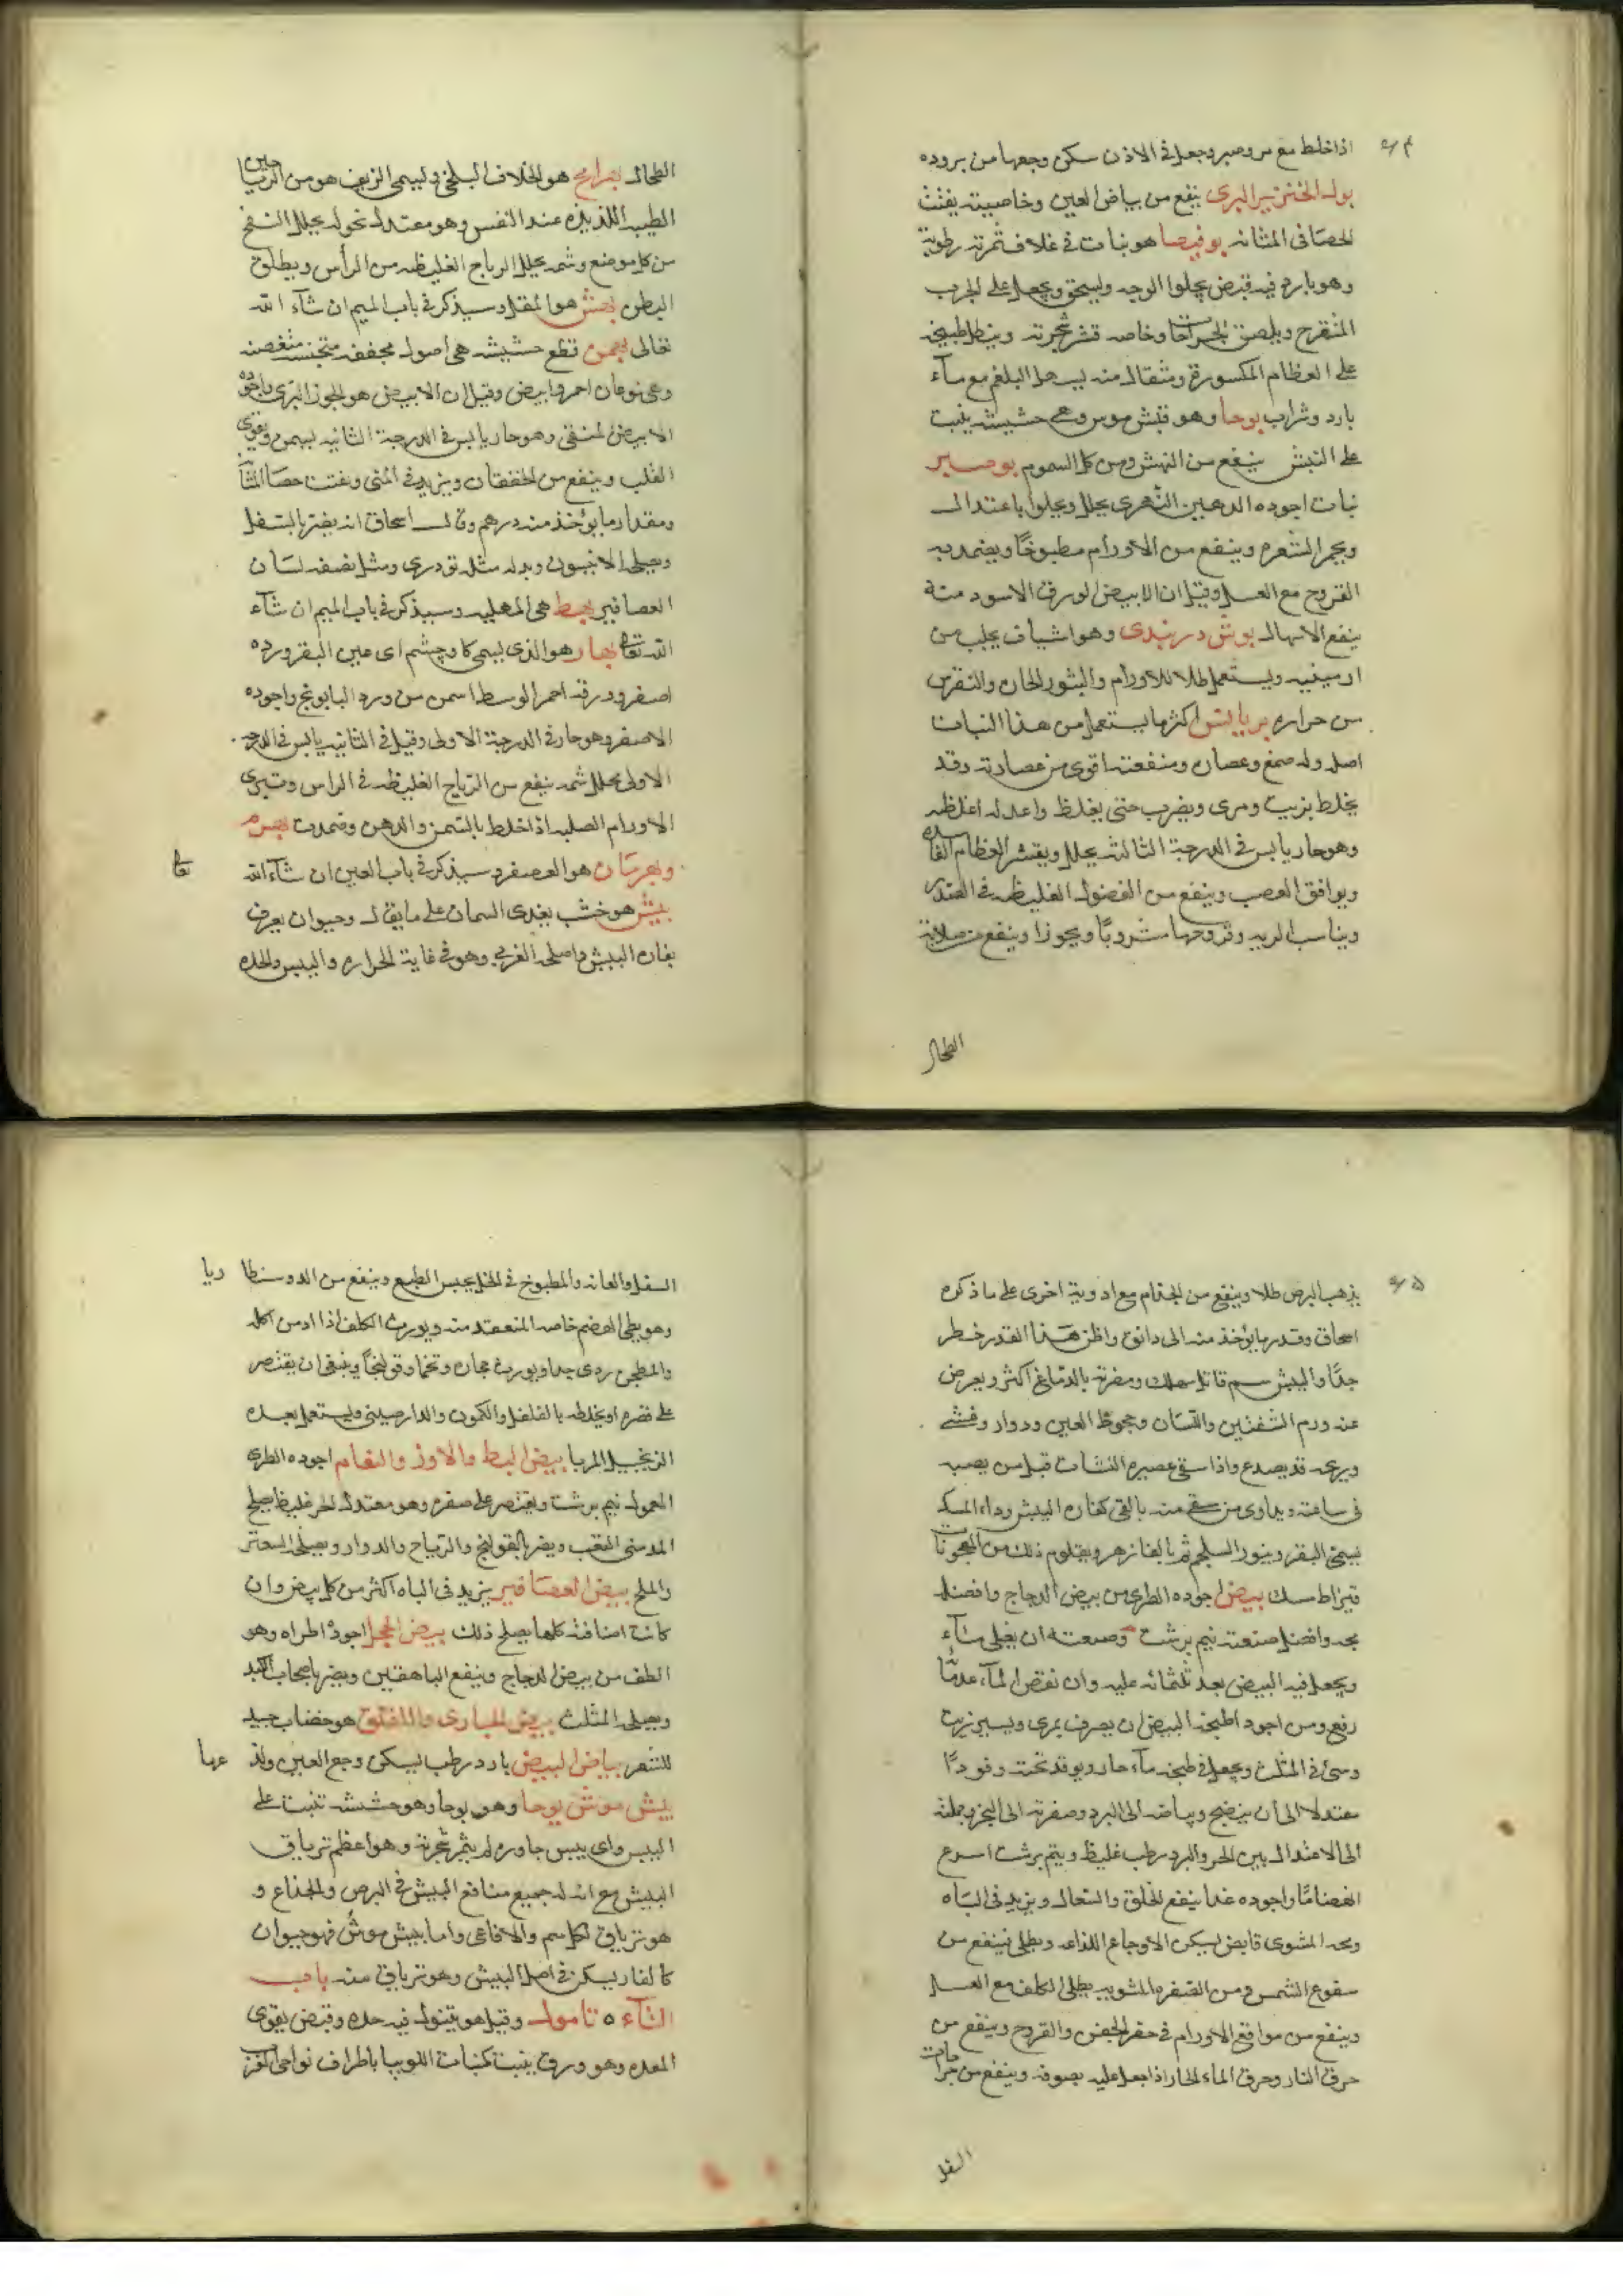 اذا خلط مع مر وصبر وجعل فى الاذن سكن وجعها من بروده
بول الخنزير البرى ينفع من بياض العين وخاصيته يفتت
الحصا فى المثانه بوفيصا هو نبات فى غلاف ثمرته رطوبة
وهو بارد فيه قبض يجلوا الوجه ويسحق ويجعل على الجرب
المتقرح ويلصق الجراحات وخاصه قشر شجرته وينطل طبيخه
على العظام المكسورة ومثقال منه يسهل البلغم مع ماء
بارد وشراب بوحا وهو بيش موس وهى حشيشه ينبت
على البيش ينفع من البهش ومن كل السموم بوصير
نبات اجوده الدهبى الزهرى يحلل ويجلوا باعتدال
ويحمر الشعره وينفع من الاورام مطبوخا ويضمد به
القروح مع العسل وقيل ان الابيض الورق الاسود منه
ينفع الاسهال بوش دربندى وهو اشياف يجلب من
ارمينيه ويستعمل طلا للاورام والبثور الحاره والنقرس
من حراره بربالينوا كثر ما يستعمل من هذا النبات
اصله وله صمغ وعصاره ومنفعته اقوى من عصارته وقد
يخلط بزيت ومرى ويضرب حتى يغلظ واعدله اغلظه
وهو حار يابس فى الدرجة الثالثه يحلل ويقشر العظام الفاسده
ويوافق العصب وينفع من الفضول الغليظه فى الصدر
ويناسب الريه وقروحها مشروبا وبخورا وينفع من صلابة
الطحال
الطحال بهرامج هو الخلاف البلخى ويسمى الرنف هو من الرياحين
الطيبه اللذيذه عند النفس وهو معتدل نحوله يحلل النفخ
من كل موضع وشمه يحلل الرياح الغليظه من الرأس ويطلق
البطن بهش هو المقل وسيذكر فى باب الميم ان شاء الله
تعالى بهمن قطع خشبيه هى اصول مجففه متجنسه متغضنه
وهى نوعان احمر وابيض وقيل ان الابيض هو الجوز البرى واجوده
الابيض المنقى وهو حار يابس فى الدرجة الثانيه يسمن ويقوى
القلب وينفع من الخفقان ويزيد فى المنى ويفتت حصا المثانه
ومقدار ما يؤخذ منه درهم وقال اسحاق انه يضر بالسفل
ويصلحه الانيسون وبدله مثله تودرى ومثل نصفه لسان
العصافير بهط هى المهلبيه وسيذكر فى باب الميم ان شاء
الله تعالى بهار هو الذى يسمى كاوچشم اى عين البقر ورده
اصفر وورقه احمر الوسط اسمن من ورد البابونج واجوده
الاصفر وهو حار فى الدرجة الاولى وقيل فى الثانيه يابس فى الدرجه
الاولى يحلل شمه ينفع من الرياح الغليظه فى الراس وتبرى
الاورام الصلبه اذا خلط بالشمع والدهن وضمدت بهرم
وبهرمان هو العصفر وسيذكر فى باب العين ان شاء الله تعالى
بيش هو خشب يغذى السمان على ما يقال وحيوان يعرف
بفاره البيش واصلحه العربى وهو فى غاية الحراره واليبس والحده
يذهب البرص طلا وينفع من الجذام مع ادوية اخرى على ما ذكره
اسحاق وقدر ما يؤخذ منه الى دانق واظن هذا القدر خطر
جدا والبيش سم قاتل مهلك ومضرته بالدماغ اكثر ويعرض
عنه ورم الشفتين واللسان وجحوظ العين ودوار وغشى
وبرصه قد يصدع واذا سقى عصيره النشاب قتل من يصيبه
فى ساعته ويداوى من سقى منه بالقى كفاره البيش ودواء المسك
بسمن البقر وبزور السلجم ثم بالفازهر ويقاوم ذلك من المعجونات
قيراط مسك بيض اجوده الطرى من بيض الدجاج وافضله
محه وافضل صنعته نيم برشت وصنعته ان يغلى ماء
ويجعل فيه البيض بعد ثلثمائه عليه وان نقص الماء عدما
رفع ومن اجود اطبخة البيض ان يصرف بمرى ويسير زيت
وشى فى المثلث ويجعل فى طبخه ماء حار ويوقد تحته وقودا
معتدلا الى ان ينضج وبياضه الى البرد وصفرته الى الحر وجملته
الى الاعتدال بين الحر والبرد رطب غليظ ونيم برشت اسرع
انهضاما واجوده غذا ينفع الحلق والسعال ويزيد فى الباه
ومحه المشوى قابض يسكن الاوجاع اللذاعه ويطلى فينفع من
سقوع الشمس ومن الصفره المشويه يطلى الكلف مع العسل
وينفع من مواقع الاورام فى حقن الجفن والقروح وينفع من
حرق النار وحرق الماء الحار اذا جعل عليه بصوفه وينفع من جراحات
السفل
السفل والعانه والمطبوخ فى الخل يحبس الطبع وينفع من الدوسنطاريا
وهو بطى الهضم خاصه المنعقد منه ويورث الكلف اذا ادمن اكله
والمطجن ردى جدا ويورث حجاره وتخما وقولنجا وينبغى ان يقتصر
على صفره او يخلطه بالفلفل والكمون والدارصينى ويستعمل بعده
الزنجبيل المربا بيض البط والاوز والنعام اجوده الطرى
المعمول نيم برشت ويقتصر على صفره وهو معتدل الحر غليظ يصلح
المدمنى التعب ويضر بالقولنج والرياح والدوار ويصلحه السعتر
والملح بيض العصافير يزيد فى الباه اكثر من كل بيض وان
كانت اصنافه كلها يصلح ذلك بيض الحجل اجوده اطراه وهو
الطف من بيض الدجاج وينفع الناهقين ويضر باصحاب الكبد
ويصلحه المثلث بيض الحبارى واللقلق هو خضاب جيد
للشعر بياض البيض بارد رطب يسكن وجع العين ولذعها
بيش موش بوحا وهو بوحا وهو حشيشه تنبت على
البيش واى بيش جاوره لم يثمر شجرته وهو اعظم ترياق
البيش مع انه له جميع منافع البيش فى البرص والجذام و
هو ترياق لكل سم والافاعى واما بيش موش فهو حيوان
كالفار يسكن فى اصل البيش وهو ترياق منه باب
التاء ٥ تامول وقيل هو تنبول فيه حده وقبض يقوى
المعده وهو ورق ينبت كنبات اللوبيا باطراف نواحى